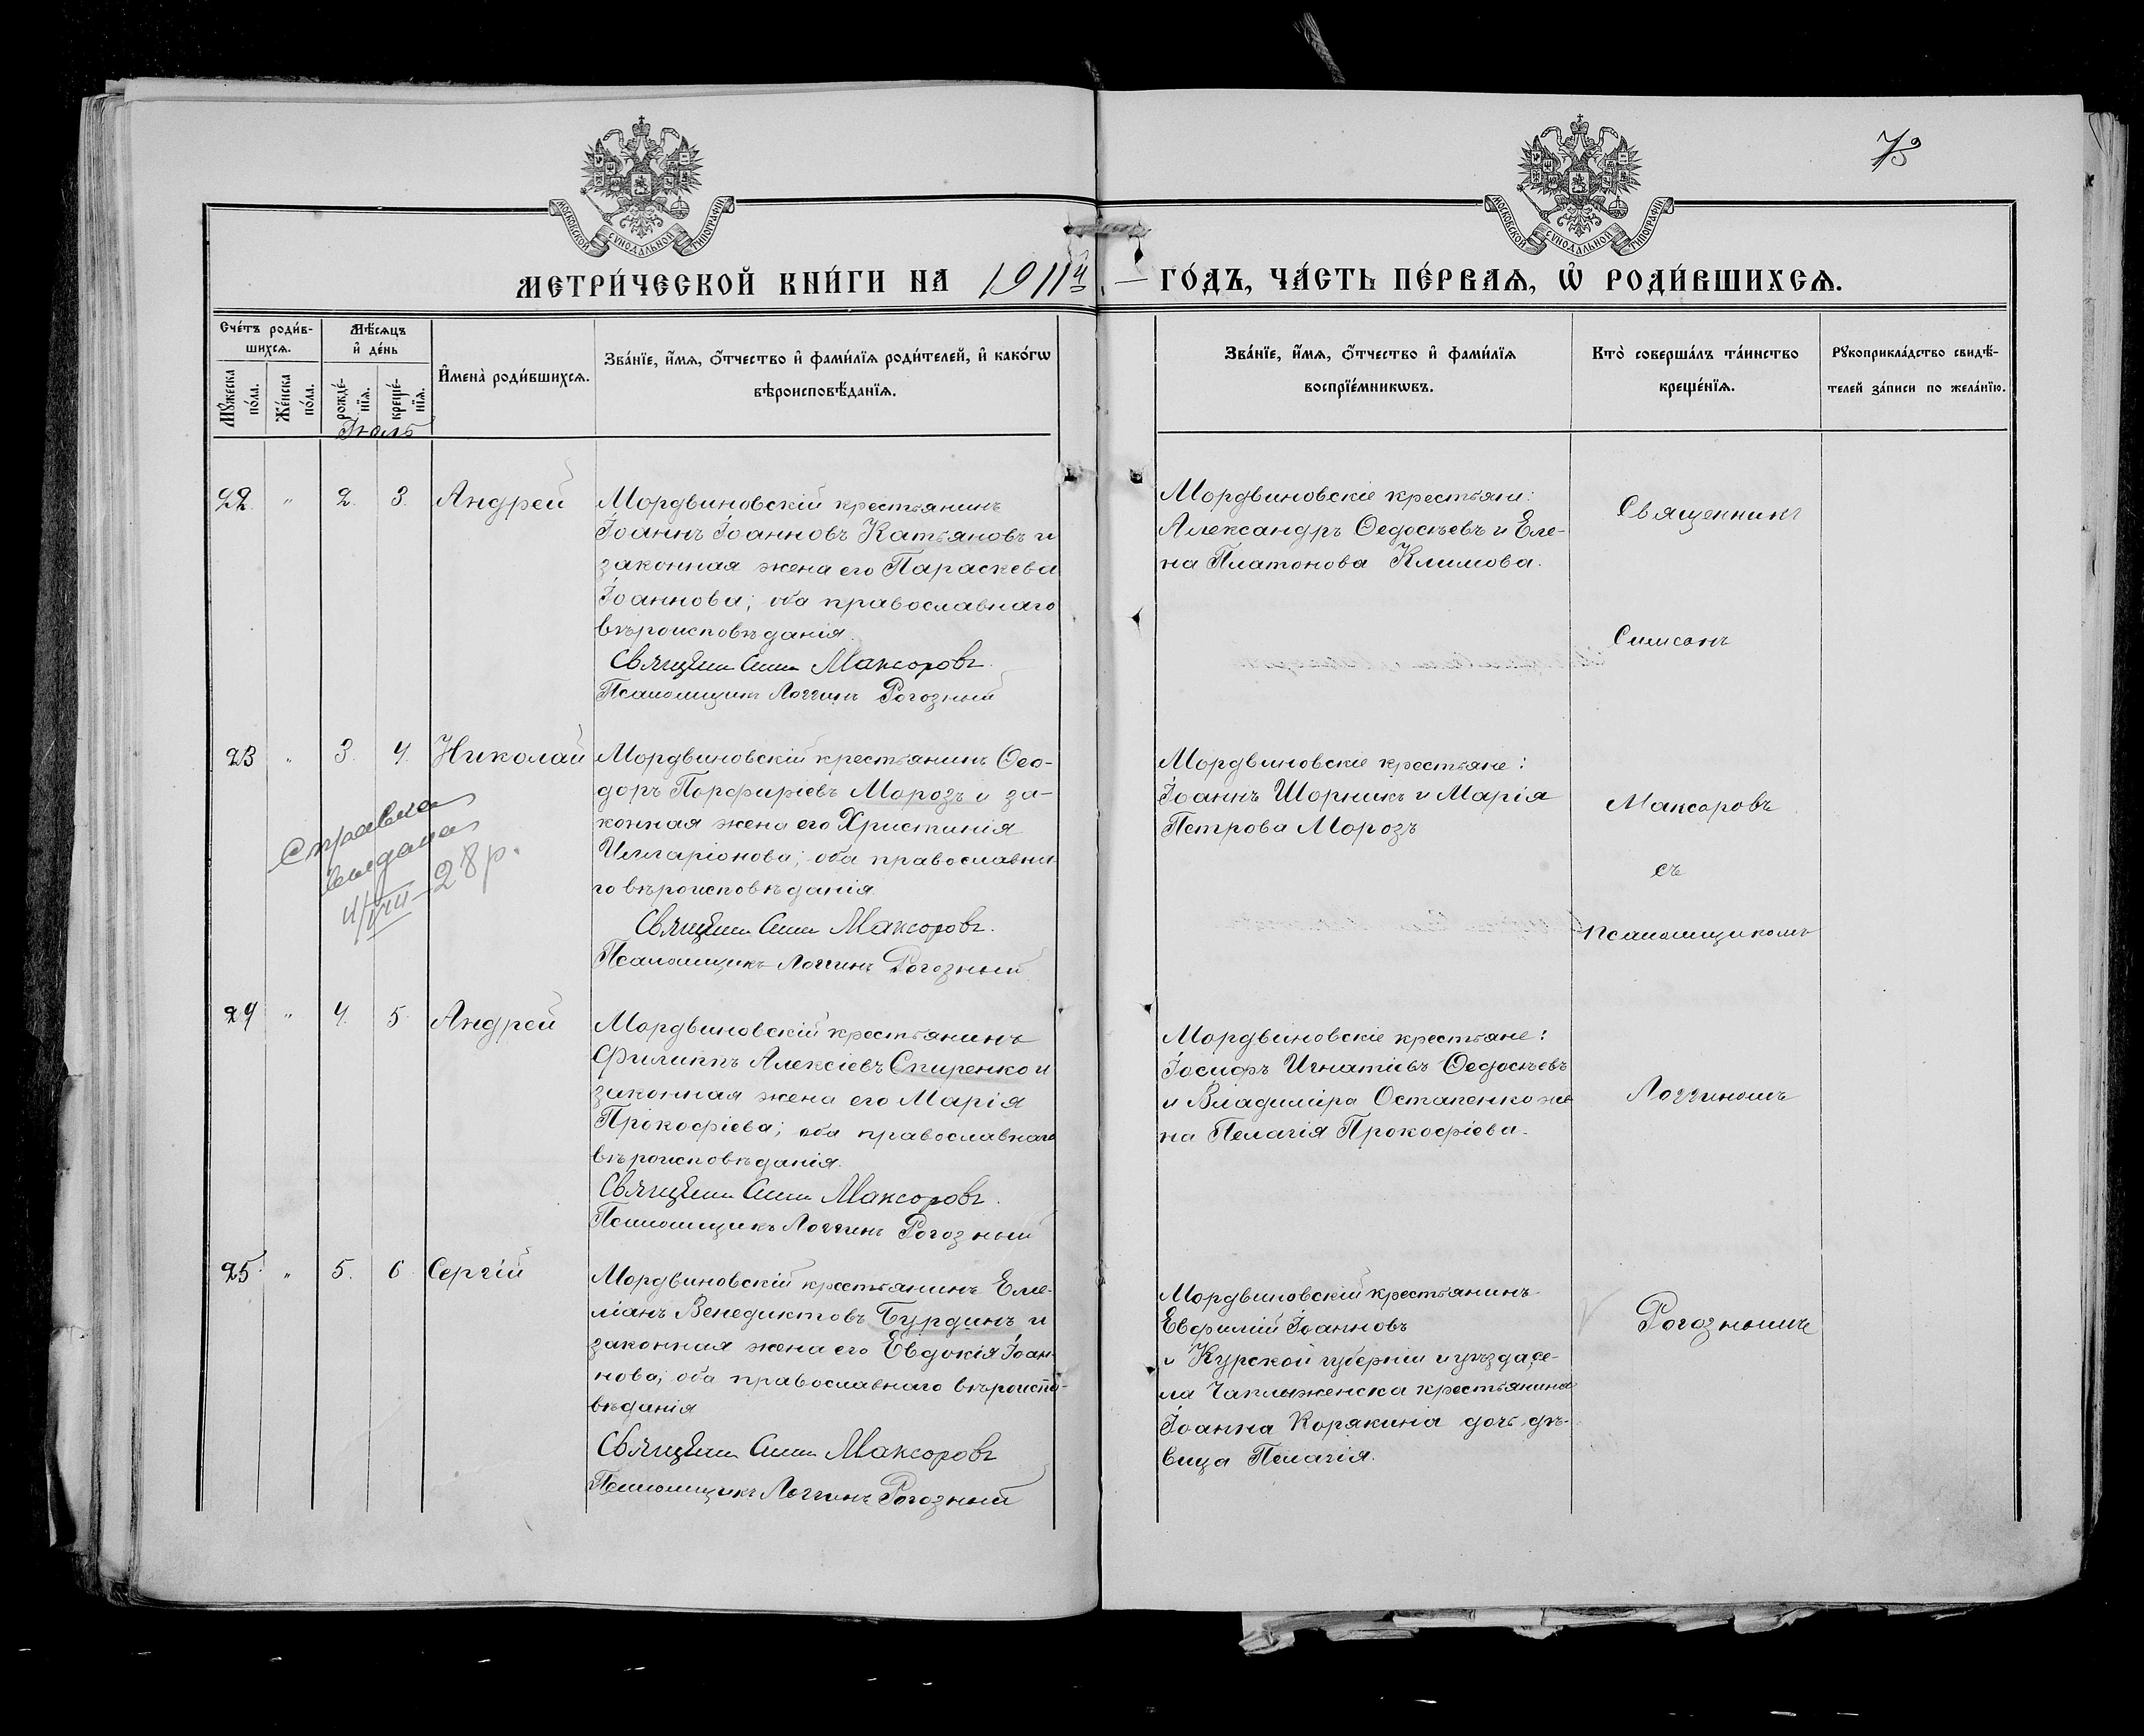 73
МОСКОВСКОЙ СѴНОДАЛЬНОЙ ТИПОГРАФІИ
МОСКОВСКОЙ СѴНОДАЛЬНОЙ ТИПОГРАФІИ
МЕТРИ́ЧЕСКОЙ КНИ́ГИ НА 1911й ГО́ДЪ, ЧА́СТЬ ПЕ́РВАѦ, Ѡ҆ РОДИ́ВШИХСѦ.
Сче́тъ роди́в-
шихсѧ.
Мꙋ́жеска по́ла.
Же́нска по́ла.
Мѣ́сѧцъ
и҆ де́нь
рожде́-
нїѧ.
креще́-
нїѧ.
И҆мена̀ роди́вшихсѧ.
Зва́нїе, и҆́мѧ, ѻ҆́тчество и҆ фами́лїѧ роди́телей, и҆ како́гѡ
вѣроисповѣ́данїѧ.
Зва́нїе, и҆́мѧ, ѻ҆́тчество и҆ фами́лїѧ
воспрїе́мникѡвъ.
Кто̀ соверша́лъ та́инство
креще́нїѧ.
Рꙋкоприкла́дство свидѣ́-
телей за́писи по жела́нїю.
Іюль
22. " 2. 3. Андрей
Мордвиновскій крестьянинъ
Іоаннъ Іоанновъ Катьяновъ и
законная жена его Параскева
Іоаннова; оба православнаго
вѣроисповѣданія.
Священ Сим Максоровъ.
Псаломщикъ Логгинъ Рогозный
Мордвиновскіе крестьяне:
Александръ Ѳедосѣевъ и Еле-
на Платонова Климова.
Священникъ
Симеонъ
23 " 3. 4. Николай
Мордвиновскій крестьянинъ Ѳео-
доръ Порфиріевъ Морозъ и за-
конная жена его Христинія
Илларіонова; оба православна-
го вѣроисповѣданія
Священ Сим Максоровъ.
Псаломщикъ Логгинъ Рогозный
Справка
выдана
4/VIII-28 р.
Мордвиновскіе крестьяне:
Іоаннъ Шорникъ и Марія
Петрова Морозъ
Максоровъ
съ
псаломщикомъ
24 " 4. 5. Андрей
Мордвиновскій крестьянинъ
Филиппъ Алексіевъ Спиренко и
законная жена его Марія
Прокофіева; оба православнаго
вѣроисповѣданія.
Священ Сим Максоровъ.
Псаломщикъ Логгинъ Рогозный
Мордвиновскіе крестьяне:
Іосифъ Игнатіевъ Ѳедосѣевъ
и Владиміра Остапенко же-
на Пелагія Прокофіева.
Логгиномъ
25. " 5. 6 Сергій
Мордвиновскій крестьянинъ Еме-
ліанъ Венедиктовъ Бурдинъ и
законная жена его Евдокія Іоан-
нова; оба православнаго вѣроиспо-
вѣданія
Священ Сим Максоровъ
Псаломщикъ Логгинъ Рогозный
Мордвиновскій крестьянинъ
Евфимій Іоанновъ
и Курской губерніи и уѣзда, се-
ла Чаплыженска крестьянина
Іоанна Корякина дочь дѣ-
вица Пелагія.
Рогознымъ